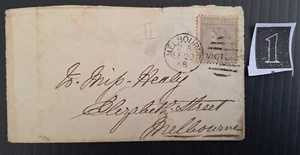 II
MELBOURNE
20
68
VICTORIA
1
To Miss Healy
Elizabeth Street
Melbourne